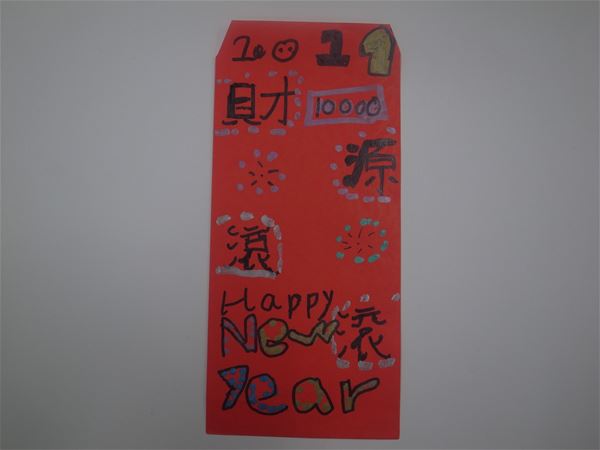 2019
財 10000
源
滾
Happy
New 滾
Year